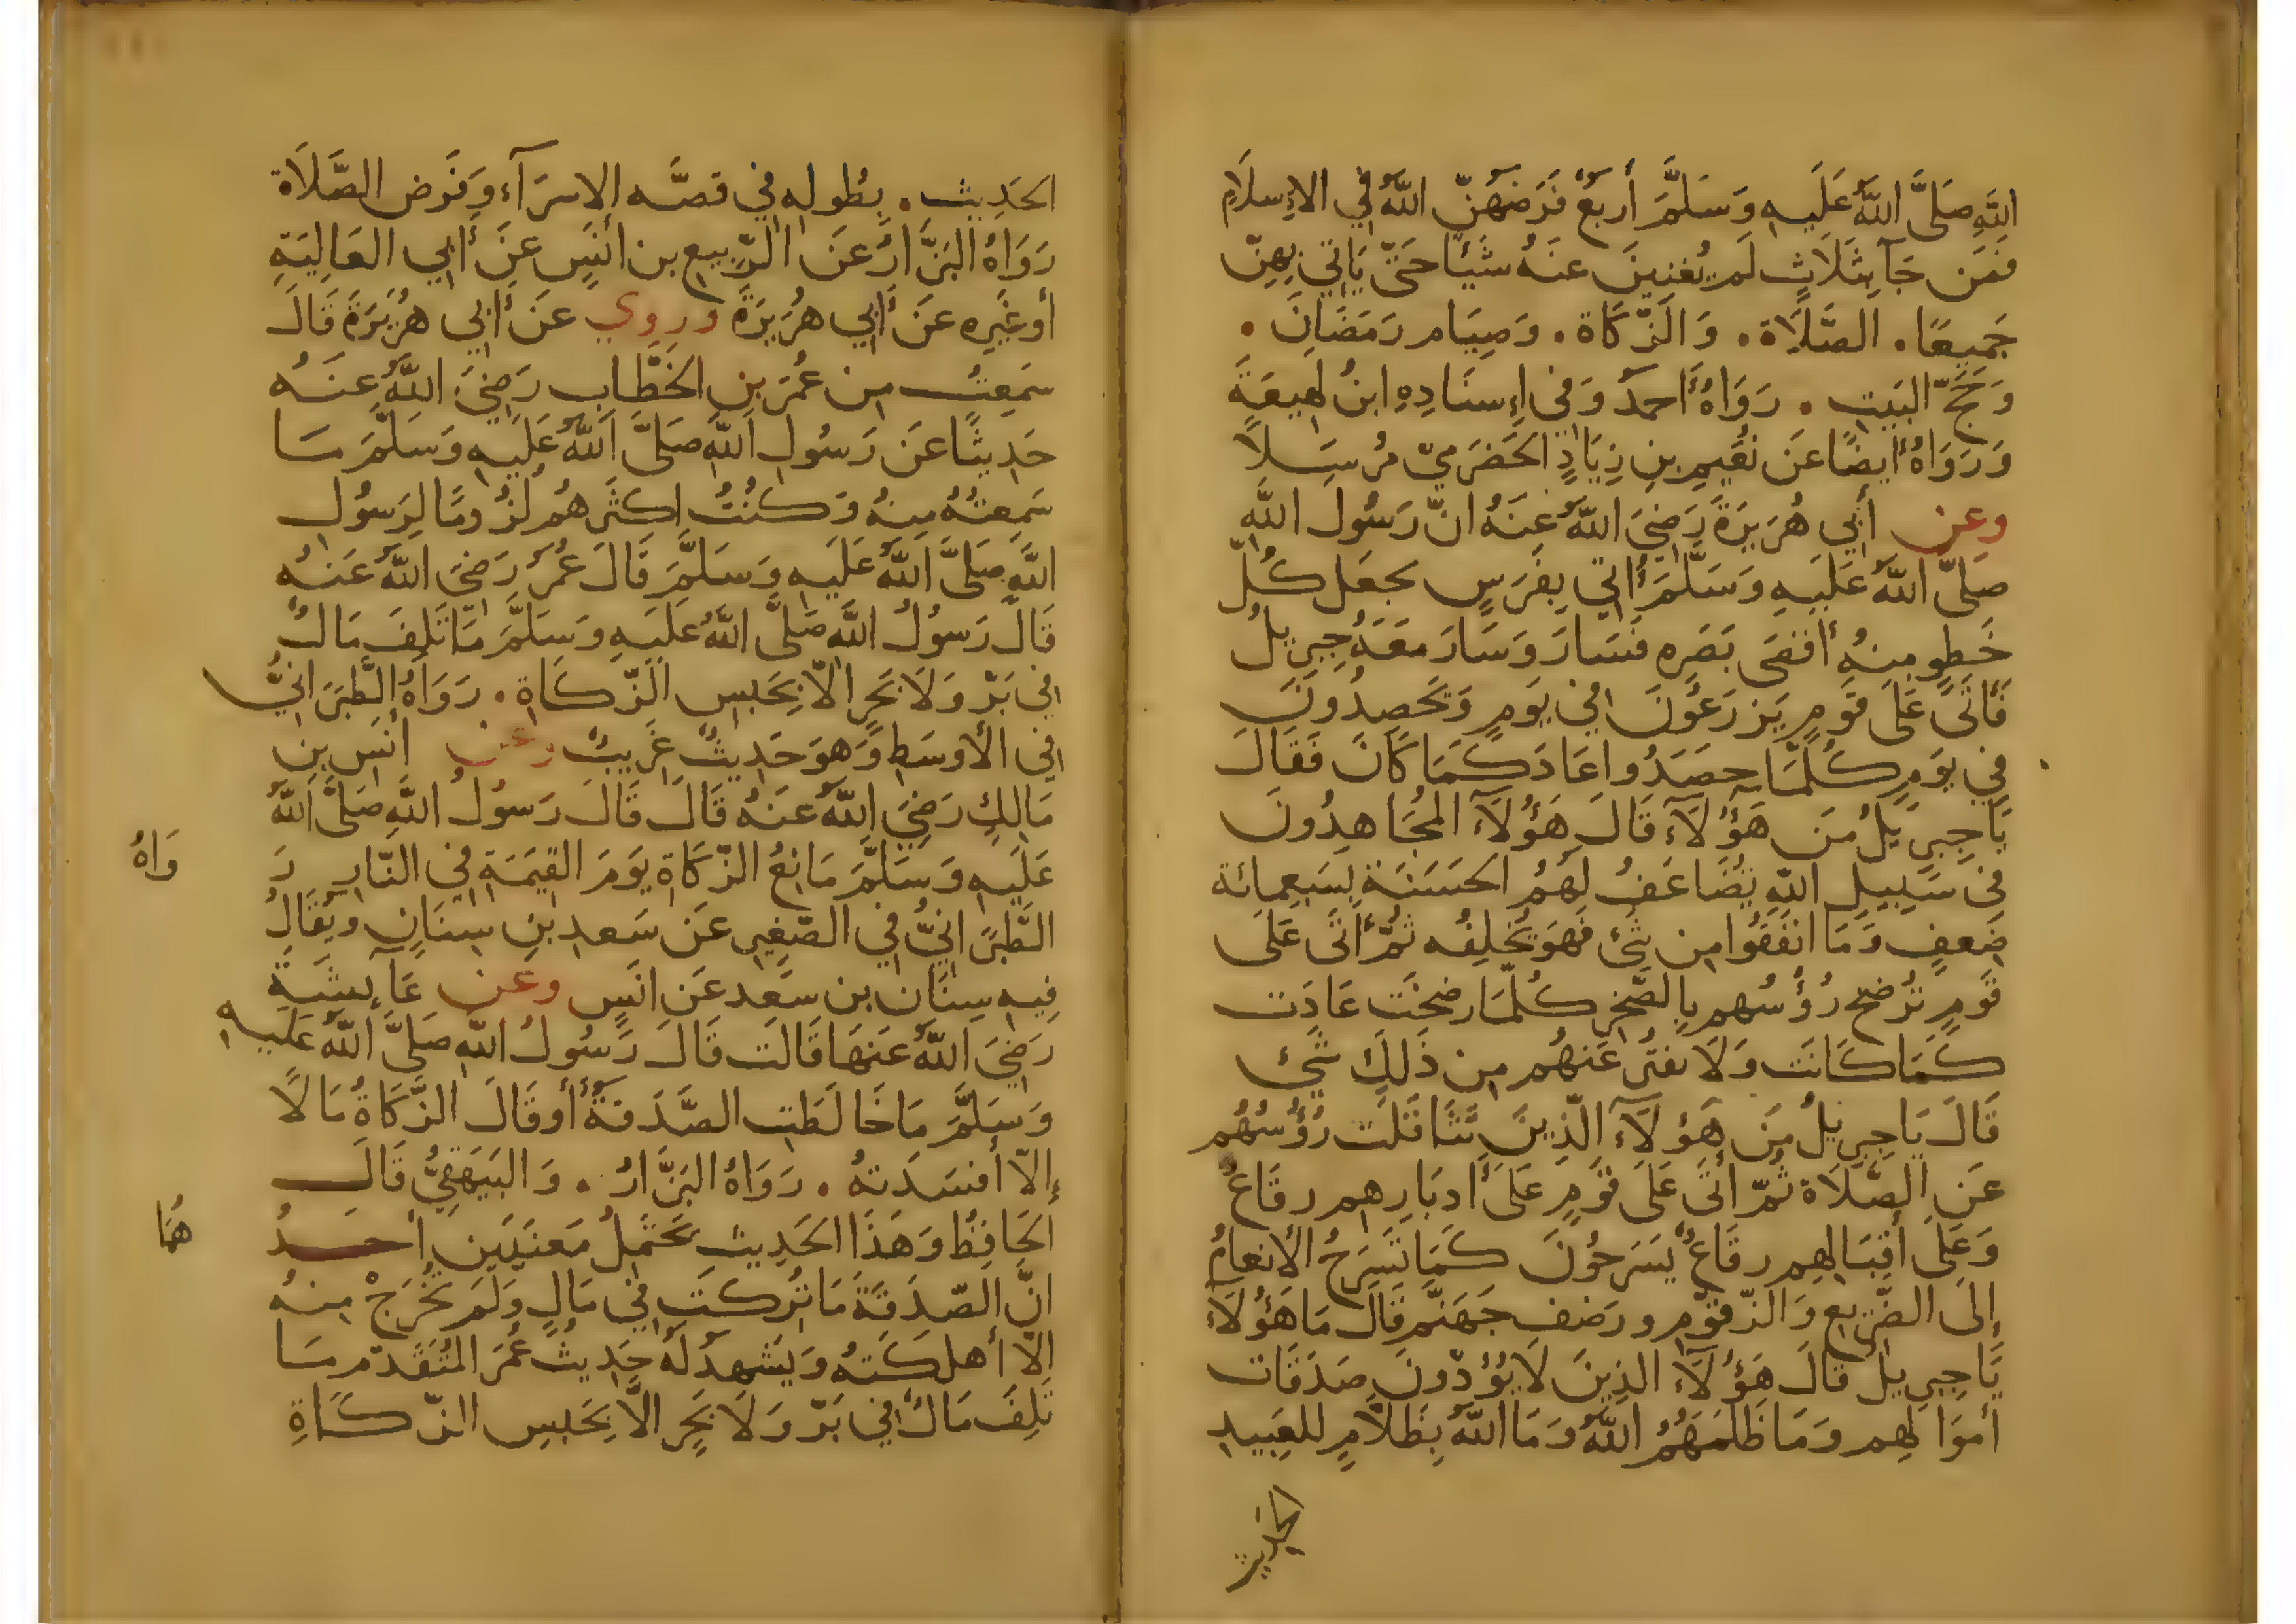 اللَّهِ صَلَّى اللَّهُ عَلَيهِ وَسَلَّمَ أَربَعٌ فَرَضَهُنّ اللَّهُ فِي الاِسلَامِ
فَمَن جَآ بِثَلَاثٍ لَم يُغنِينَ عَنهُ شَيئًا حَتّى يَاتِي بِهِنّ
جَمِيعًا . الصَّلَاة . وَالَزّكَاة . وَصِيَام رمَضَانَ .
وَحَجّ البَيتِ . رَوَاهُ أَحمدُ وَفي إِسنَادِهِ ابنُ لهِيعَةَ
وَرَوَاهُ أَيضًا عَن نُعَيمِ بنِ زِيَادٍ الحَضرَميّ مُرسَلاً
وعن أَبِي هُرَيرَةَ رَضِيَ اللَّهُ عَنهُ انّ رَسُول اللَّهِ
صَلىّ اللَّهُ عَلَيهِ وَسَلَّمَ أُتِي بِفَرَسٍ يجعَل كُلّ
خَطوٍ مِنهُ أَقصَى بَصَرِه فَسَارَ وَسَارَ مَعَهُ جِبرِيلُ
فَأَتَى عَلَى قَومٍ يَزرَعُونَ في يَومٍ وَيَحصِدُونَ
فِي يَومٍ كُلّمَا حصَدُوا عَادَ كَمَا كَانَ فَقَالَ
يَا جِبرِيلُ مَن هَؤُلَآءِ قَالَ هَؤُلَآءِ المُجَاهِدُونَ
في سَبِيلِ اللَّهِ تُضَاعَفُ لَهُمُ الحَسَنَة بِسَبعِمائة
ضِعفٍ وَمَا انفَقُوا مِن شَئ فَهوَ يُخلِفُه ثُمّ أَتَى عَلَى
قَومٍ تُرضَخ رُؤُسُهم بِالصّخرِ كُلّمَا رضخَت عَادَت
كَمَا كَانَت وَلَا يفتُر عَنهُم مِن ذَلِكَ شَيئ
قَالَ يَا جِبرِيلُ مَن هَؤلَآءِ الَّذِينَ تَثَاقَلَت رُؤُسُهُم
عَنِ الصَّلَاة ثُمّ أَتَى عَلَى قَومٍ عَلَى أَدبَارِهِم رقَاعٌ
وَعَلَى أَقبَالِهِم رقَاعٌ يَسَرحُونَ كَمَا تَسَرحُ الأَنعامُ
إِلىَ الضّرِيع وَالَزّقّومِ ورَضفِ جَهَنَّمَ قَالَ مَا هَؤُلَآءِ
يَا جِبرِيلُ قَالَ هَؤُلَآءِ الذِينَ لَا يُؤدّونَ صَدَقَات
أَموَالِهِم وَمَا ظَلَمَهُمُ اللَّهُ وَمَا اللَّهُ بِظَلَّامٍ لِلعَبِيدِ
الحَدِيثَ
الحَدِيث . بِطُولِهِ في قصَّه الاِسرَآءِ وَفَرض الصَّلَاة
رَوَاهُ البَزَّارُ عَن الرّبِيع بن أنَسٍ عَن أَبي العَالِيَةِ
أَو غَيرِه عَن أَبِي هُرَيرَةَ ورُوِي عَن أَبِي هُرَيرَةَ قَالَ
سَمِعتُ مِن عُمَرَ بنِ الخَطَّابِ رَضِيَ اللَّهُ عَنهُ
حَدِيثًا عَن رَسُولِ اللَّهِ صَلىَّ اللَّهُ عَلَيهِ وَسَلَّمَ مَا
سَمِعتُهُ مِنهُ وَكُنتُ اكثَرهُم لُزُومًا لِرَسُول
اللَّهِ صَلَّى اللَّهُ عَلَيهِ وَسَلَّمَ قَالَ عُمَرُ رَضِيَ اللَّهُ عَنهُ
قَالَ رَسُولُ اللَّهِ صَلىَّ اللَّهُ عَلَيهِ وَسَلَّمَ مَا تَلِفَ مَالٌ
فِي بَرّ وَلَا بَحرٍ الاّ بِحَبسِ الزّكَاةِ . رَوَاهُ الطَّبَرَانيُّ
في الأَوسَطِ وَهوَ حَدِيثٌ غَرِيبٌ وعن أَنسِ بنِ
مَالِكٍ رَضِيَ اللَّهُ عَنهُ قَالَ قَالَ رَسُولُ اللَّهِ صَلىَّ اللَّهُ
عَلَيهِ وَسَلَّمَ مَانِعُ الزّكَاةِ يَومَ القِيمَةِ فِي النّارِ رَ
وَاهُ
الطَّبَرَانيُّ في الصّغِيرِ عَن سَعدِ بنِ سِنَانٍ ويُقَالُ
فِيهِ سِنَان بن سَعدٍ عَن انَسٍ وعن عَآئِشَةَ
رَضِيَ اللَّهُ عَنهَا قَالَت قَالَ رَسُولُ اللَّهِ صَلىَّ اللَّهُ عَلَيهِ
وَسَلَّمَ مَا خَالَطَتِ الصَّدَقَةُ أَو قَالَ الزَّكَاةُ مَالًا
إِلاّ أَفسَدَتهُ . رَوَاهُ البَزَّارُ . وَالبَيهَقِيُّ قَالَ
الحَافِظُ وَهَذَا الحَدِيث يَحتَمِلُ مَعنَيَينِ أَحَدُ
هُمَا
انّ الصّدَقَةَ مَا تُرِكَت فِي مَالٍ وَلَم تُخرَجْ مِنهُ
الاّ أَهلَكَتهُ وَيَشهدُ لَهُ حَدِيثُ عُمَرَ المُتَقَدّم مَا
تَلِفَ مَالٌ فِي بَرّ وَلَا بَحرٍ الاَّ بِحَبسِ الزّكَاةِ